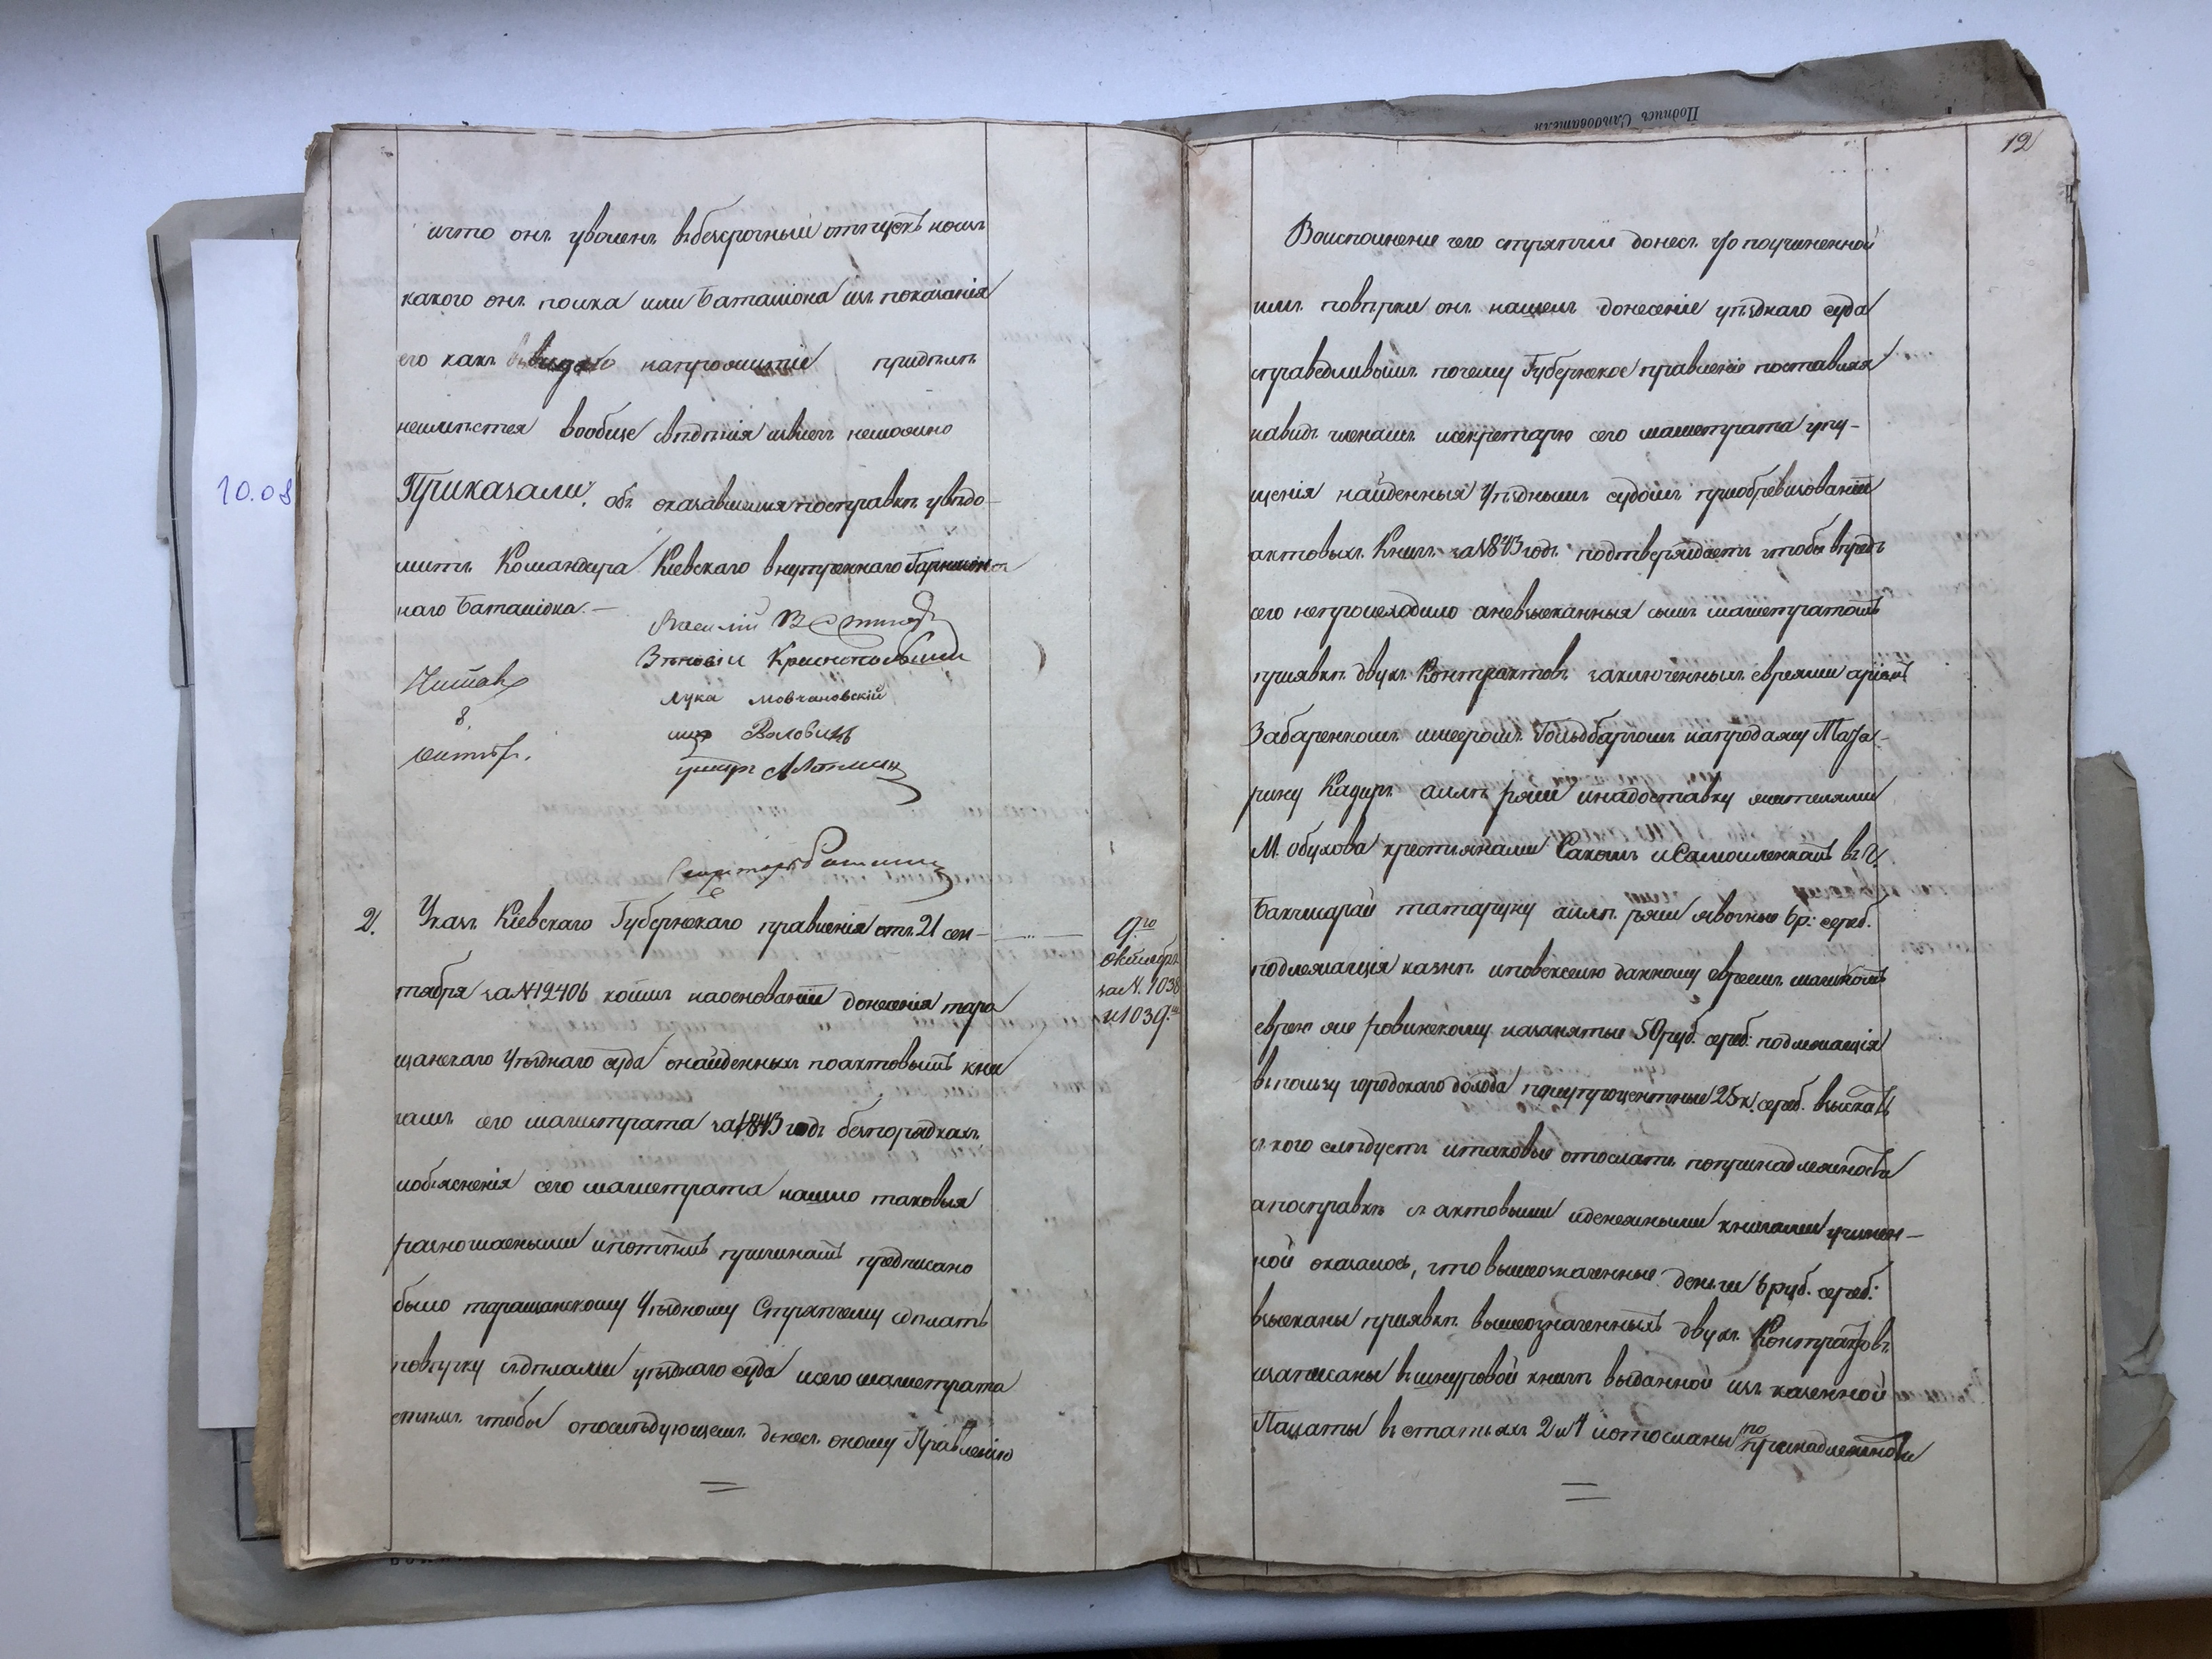 что онъ уволенъ въ безсрочный отпускъ но изъ
какого онъ полка или баталіона изъ показанія
его какъ
неимѣется вообще свѣдѣнія
Приказали. объ оказавшимся по справкѣ увѣдо-
мить Командира Кіевскаго внутренняго Гарнизон
наго Баталіона. —
Василій
Зѣновій Краснопольскій
Лука Мовчановскій
Читав
8
октяб.
Секретарь
2. Указъ Кіевскаго Губернскаго правленія отъ 21 сен-
тября за № 12406 коимъ на основаніи донесенія тара
щанскаго Уѣзднаго суда о найденныхъ по актовымъ кни
гамъ сего магистрата за 1843 годъ безпорядкахъ,
и объясненія сего магистрата нашло таковыя
разногласными и по тѣмъ причинамъ предписано
было таращанскому Уѣздному Стряпчему сдѣлать
повѣрку съ дѣлами уѣзднаго суда и сего магистрата
стѣмъ чтобы о послѣдующемъ донесъ оному Правленію
9.го
октября
за №. 1038
и 1039.
Подпись Слѣдователя
10.08
12
Во исполненіе чего стряпчій донесъ что по учиненной
имъ повѣрки онъ нашелъ донесеніе уѣзднаго суда
справедливымъ почему Губернское правленіе поставляя
навидъ членамъ и секретарю сего магистрата упу-
щенія найденныя Уѣзднымъ судомъ при обревизованіи
актовыхъ Книгъ за 1843 годъ подтверждаетъ чтобы впредь
сего непроисходило а невзысканныя симъ магистратомъ
при явкѣ двухъ Контрактовъ заключенныхъ евреями
Забаренкомъ Гольдбаргомъ на продажу Тата-
рину Кадиръ и на доставку жителями
М. обухова крестьянами Сакомъ и Самоиленкомъ въ г.
Бакчисарай татарину явочные 6 р: сереб.
подлежащія казнѣ и по векселю данному евреемъ
еврею же ровинскому на занятые 50 руб. сереб: подлежащія
въ пользу городскаго дохода 25 к. сереб. взыскать
съ кого слѣдуетъ и таковые отослать по принадлежности
а по справкѣ съ актовыми и денежными книгами учинен-
ной оказалось, что вышеозначенные деньги 6 руб. сереб:
взысканы при явкѣ вышеозначенныхъ двухъ Контрактовъ
и записаны въ шнуровой книгѣ выданной изъ казенной
Палаты въ статьяхъ 2 и 4 и отосланы по принадлежности